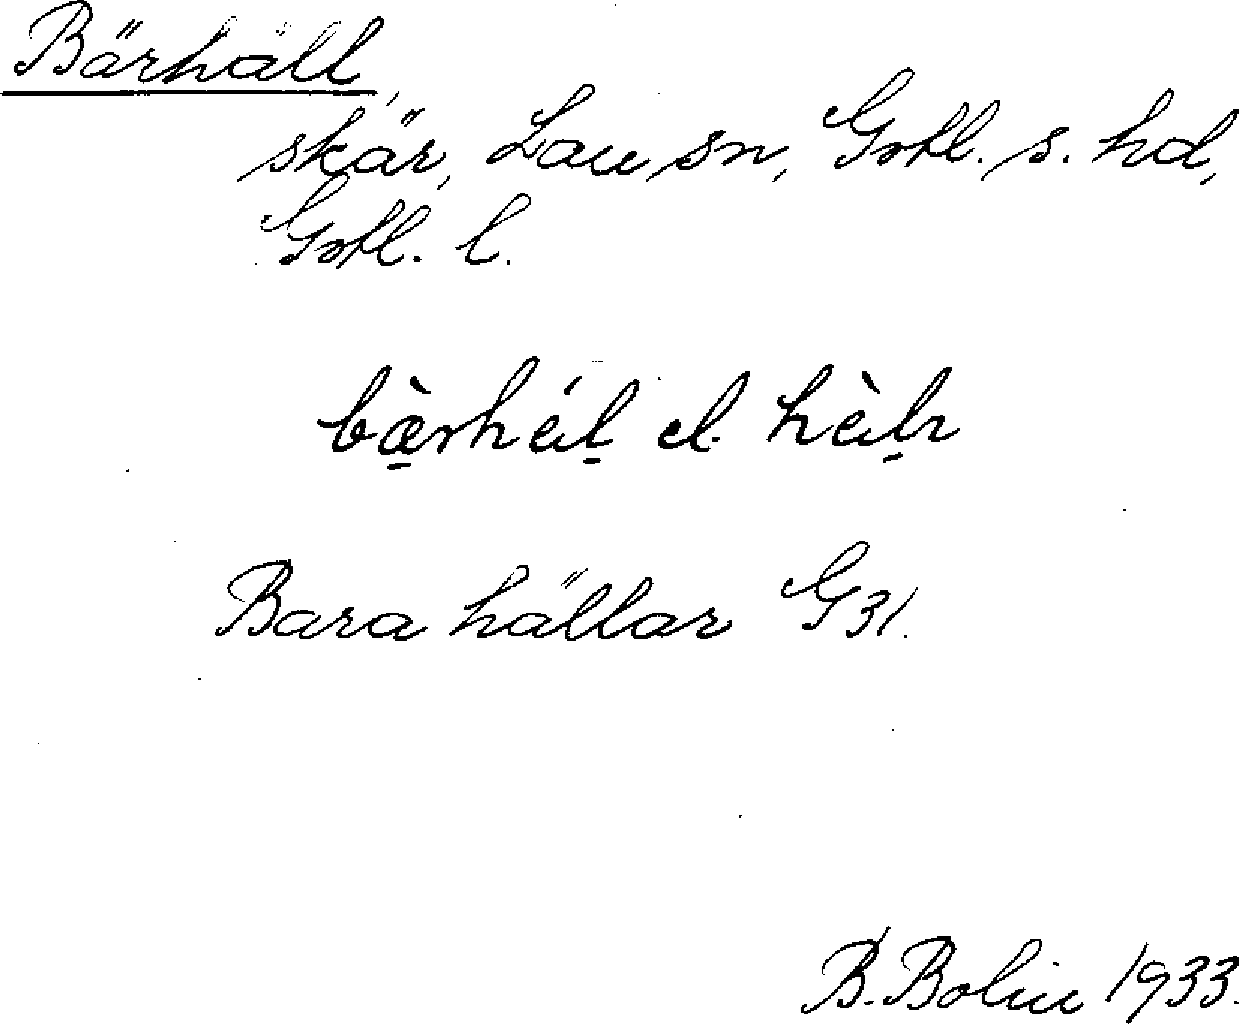 Bärhäll,
skär, Lau sn, Gotl. s. hd,
Gotl. l.
bæ̀rhéil el. hèilr
Bara hällar G31.
B. Bolin 1933.